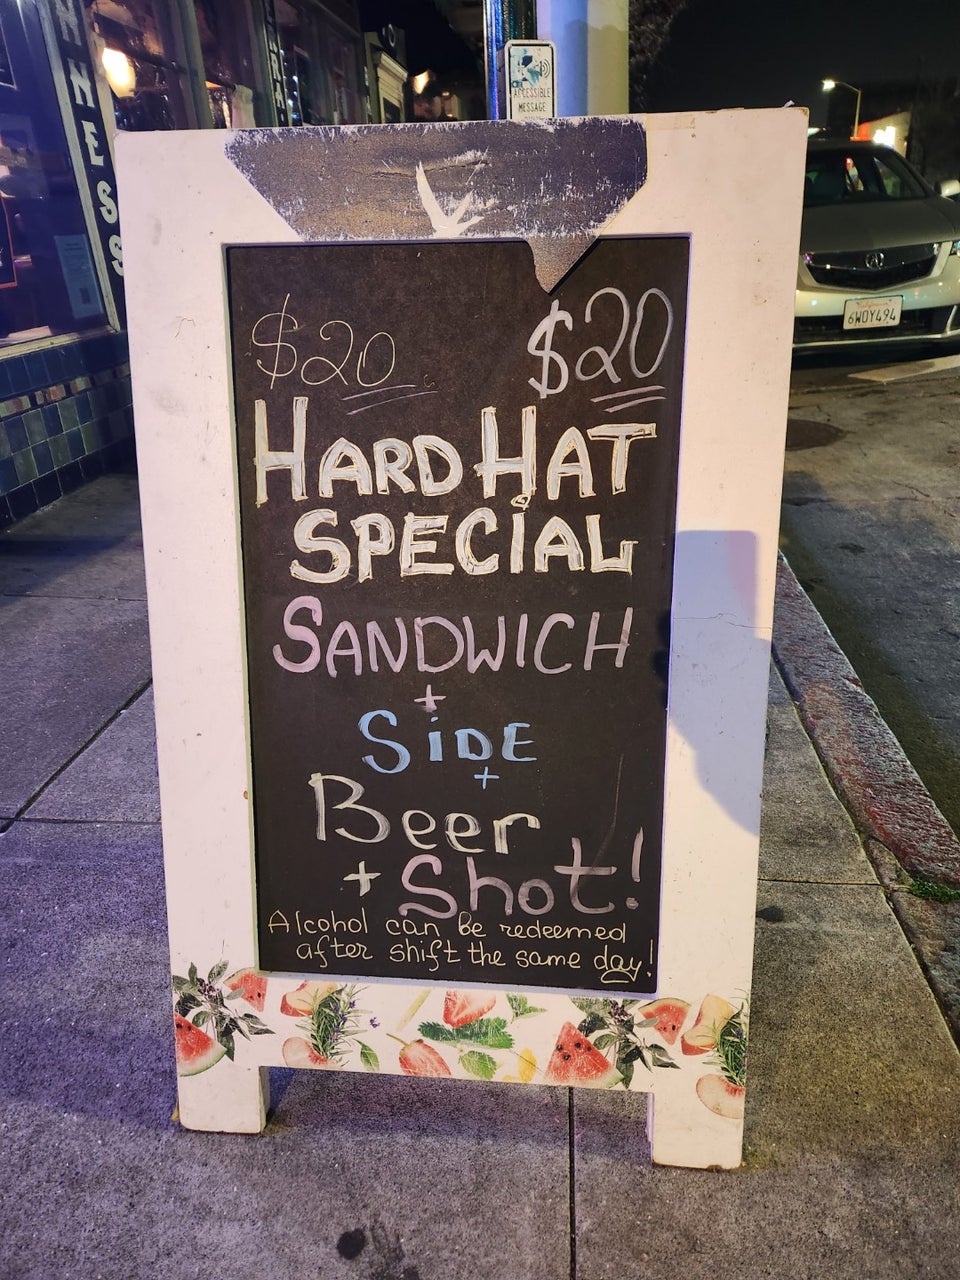 NNESS
ACCESSIBLE
MESSAGE
6WDY494
$20 $20
HARD HAT
SPECiAL
SANDWICH
+
SiDE
+
Beer
+ Shot!
Alcohol can be redeemed
after shift the same day!